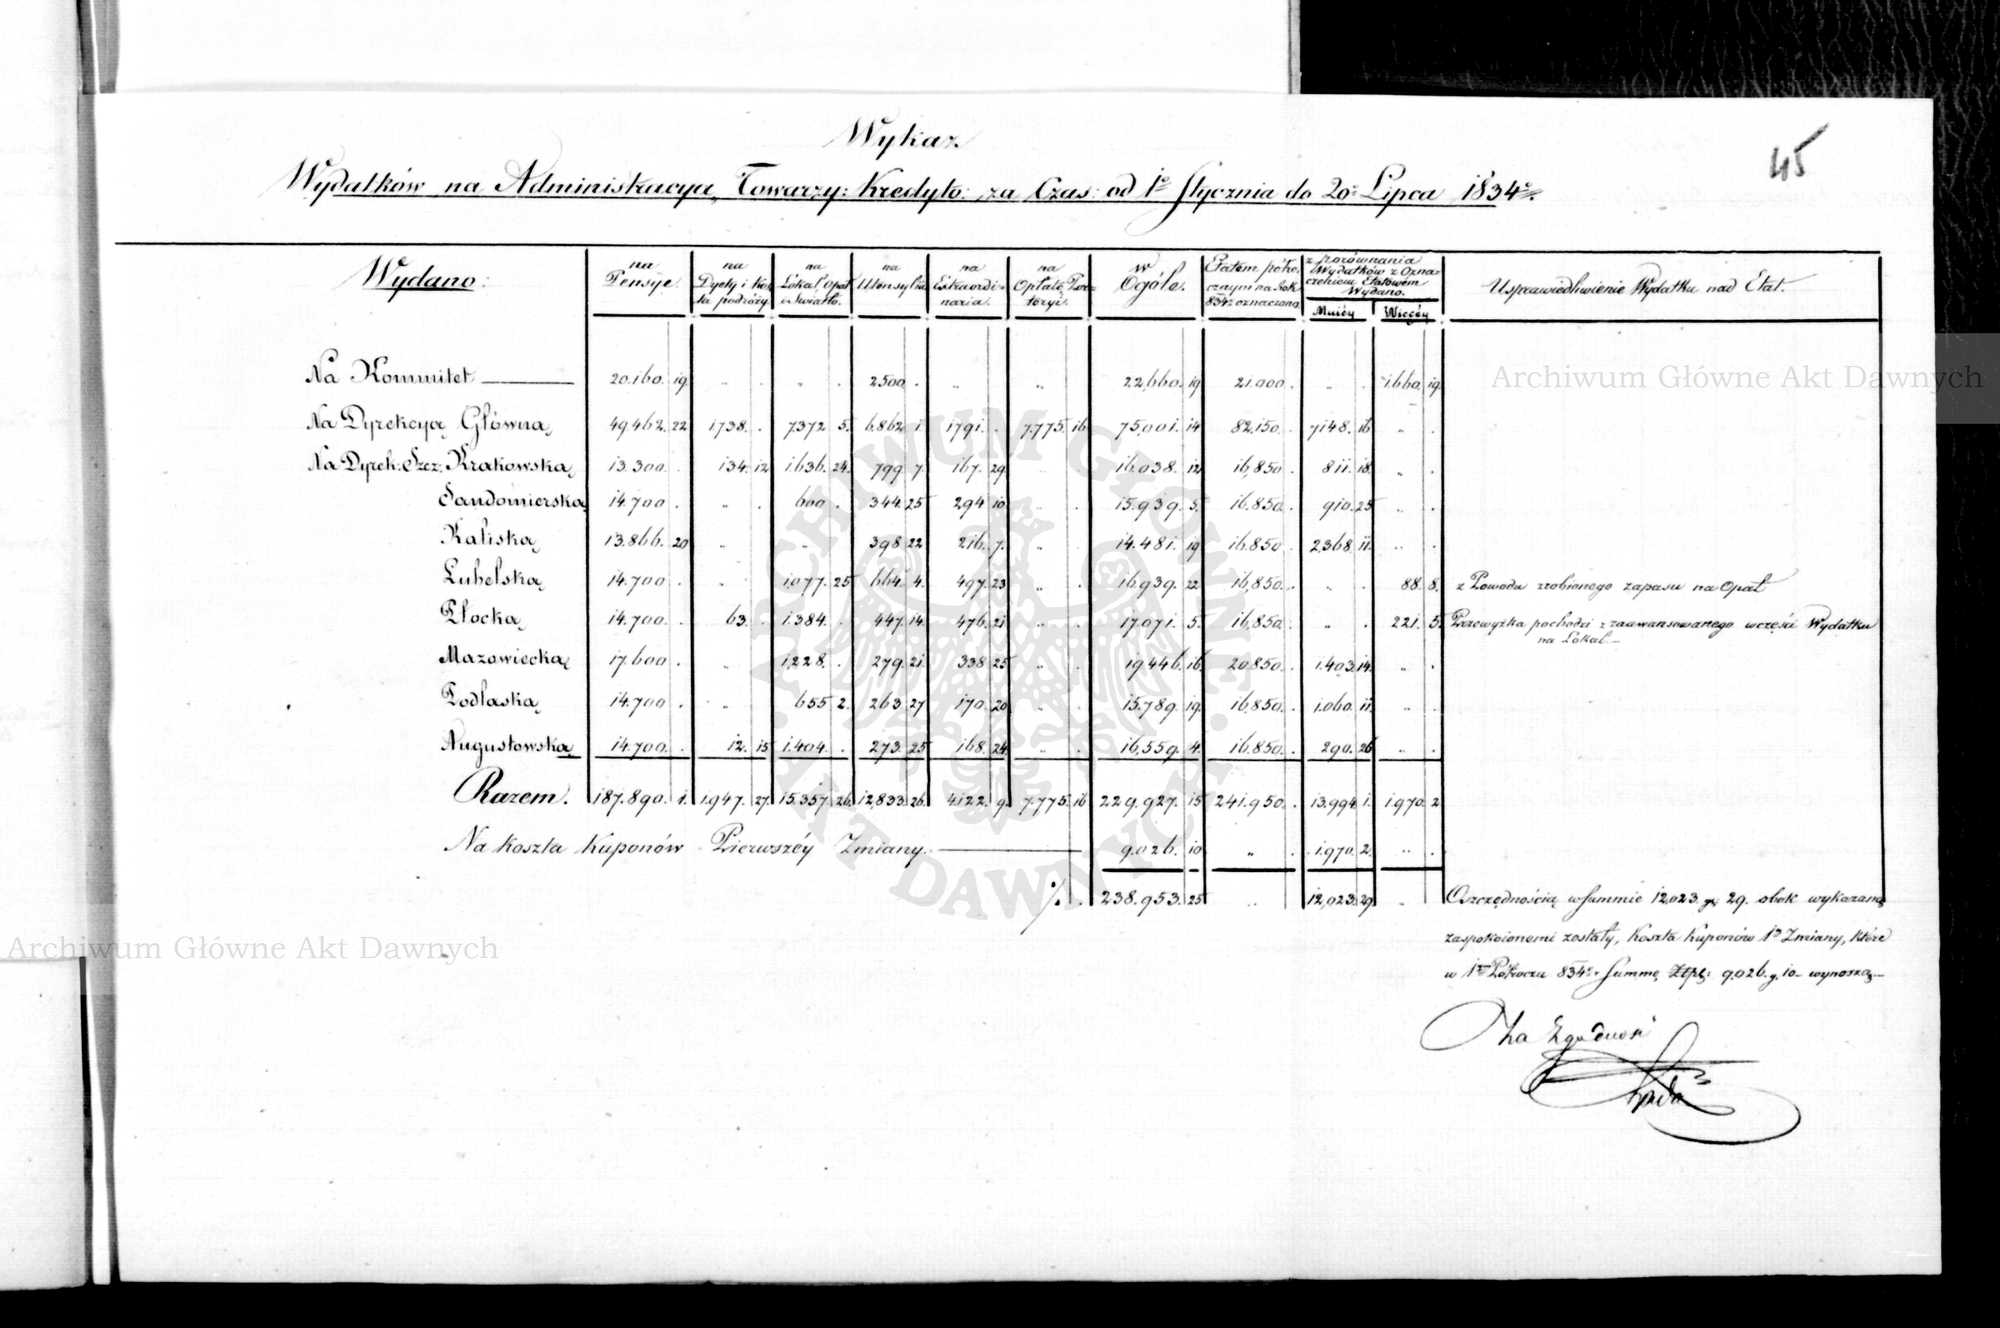 45
Wykaz
Wydatków na Administracyą Towarzy: Kredyto: za Czas: od 1o Stycznia do 20o Lipca 1834o
Wydano:
na Pensye.
na Dyety i kosz-ta podróży.
na Lokal, Opał i Swiatło.
na Utensylia
na Extraordi-naria.
na Opłatę Por-toryi.
w Ogóle.
Etatem półro-cznym na Rok 834o oznaczono
z porównania Wydatków z Ozna-czeniem Etatowem Wydano.
Mniéy Więcéy
Usprawiedliwienie Wydatku nad Etat.
Na Kommitet 20.160. 19. „ . „ . 2500. . „ „ 22,660. 19 21.000. . „ . 1.660. 19.
Na Dyrekcyą Główną, 49.462. 22 1738. . 7372. 5. 6.862. 1. 1791. . 7.775. 16 75,001. 14 82,150. . 7148. 16 „ .
Na Dyrek: Szcz: Krakowską, 13.300. . 134. 12 1.636. 24. 799. 7. 167. 29 16,038. 12 16,850. . 811. 18. „ .
Sandomierską, 14.700. . „ . 600. . 344. 25 294. 10 „ . 15.939. 5. 16.850. . 910. 25 „ .
Kaliską, 13.866. 20 „ „ 398. 22 216. 7. „ . 14.481. 19 16.850. . 2368. 11. „ .
Lubelską, 14.700. . „ 1077. 25 664. 4. 497. 23 „ . 16.939. 22 16,850. . „ . 88. 8. z Powodu zrobionego zapasu na Opał
Płocką, 14.700. . 63. . 1.384. . 447. 14 476. 21 „ . 17.071. 5. 16.850. . „ . 221. 5. Przewyżka pochodzi z zaawansowanego wczęści Wydatku
na Lokal.
Mazowiecką, 17.600. . „ 1,228. . 279. 21. 338. 25 „ . 19446. 16. 20,850. . 1.403. 14. „ .
Podlaską, 14.700 . „ 655. 2. 263. 27 170. 20 „ . 15.789. 19. 16,850. . 1.060. 11. „ .
Augustowską 14.700. . 12. 15 1.404. . 273. 25 168. 24. „ . 16,559. 4. 16.850. . 290. 26 „ .
Razem. 187.890. 1. 1.947. 27. 15.357. 26. 12,833. 26. 4122. 9. 7.775. 16 229.927. 15 241.950. . 13.994. 1. 1.970. 2
Na Koszta Kuponów Pierwszéy Zmiany. 9.026. 10 „ . 1.970. 2. „ .
/. . 238.953. 25 „ . 12,023. 29 „ .
Oszczędnością wSummie 12,023. gr 29. obok wykazaną
zaspokoionemi zostały, Koszta Kuponów 1o Zmiany, które
w 1m Półroczu 834o r Summę Złpl: 9.026. g. 10 wynoszą
Za Zgodność
Archiwum Główne Akt Dawnych
Archiwum Główne Akt Dawnych
ARCHIWUM GŁÓWNE AKT DAWNYCH